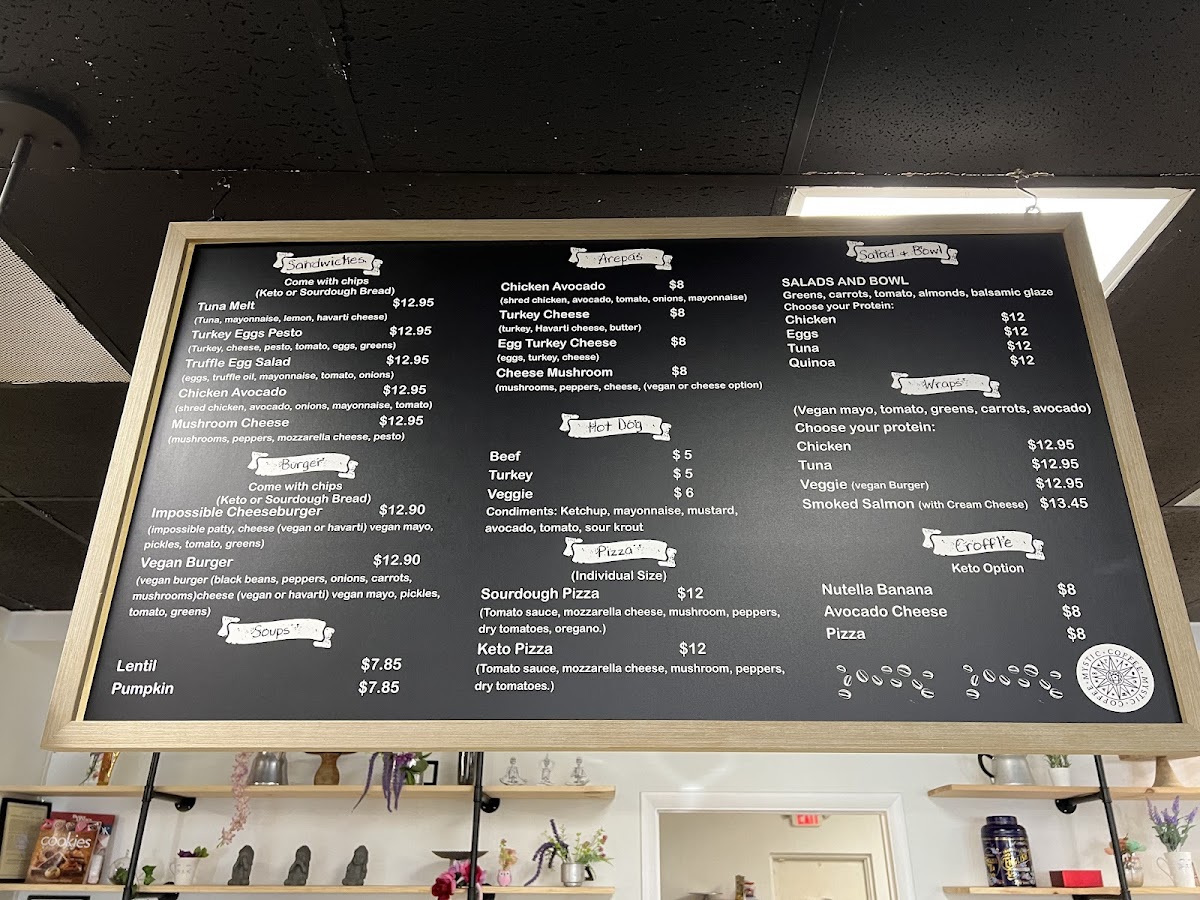 Sandwiches
Come with chips
(Keto or Sourdough Bread)
Tuna Melt $12.95
(Tuna, mayonnaise, lemon, havarti cheese)
Turkey Eggs Pesto $12.95
(Turkey, cheese, pesto, tomato, eggs, greens)
Truffle Egg Salad $12.95
(eggs, truffle oil, mayonnaise, tomato, onions)
Chicken Avocado $12.95
(shred chicken, avocado, onions, mayonnaise, tomato)
Mushroom Cheese $12.95
(mushrooms, peppers, mozzarella cheese, pesto)
Burger
Come with chips
(Keto or Sourdough Bread)
Impossible Cheeseburger $12.90
(impossible patty, cheese (vegan or havarti) vegan mayo,
pickles, tomato, greens)
Vegan Burger $12.90
(vegan burger (black beans, peppers, onions, carrots,
mushrooms)cheese (vegan or havarti) vegan mayo, pickles,
tomato, greens)
Soups
Lentil $7.85
Pumpkin $7.85
Arepas
Chicken Avocado $8
(shred chicken, avocado, tomato, onions, mayonnaise)
Turkey Cheese $8
(turkey, Havarti cheese, butter)
Egg Turkey Cheese $8
(eggs, turkey, cheese)
Cheese Mushroom $8
(mushrooms, peppers, cheese, (vegan or cheese option)
Hot Dog
Beef $ 5
Turkey $ 5
Veggie $ 6
Condiments: Ketchup, mayonnaise, mustard,
avocado, tomato, sour krout
Pizza
(Individual Size)
Sourdough Pizza $12
(Tomato sauce, mozzarella cheese, mushroom, peppers,
dry tomatoes, oregano.)
Keto Pizza $12
(Tomato sauce, mozzarella cheese, mushroom, peppers,
dry tomatoes.)
Salad + Bowl
SALADS AND BOWL
Greens, carrots, tomato, almonds, balsamic glaze
Choose your Protein:
Chicken $12
Eggs $12
Tuna $12
Quinoa $12
Wraps
(Vegan mayo, tomato, greens, carrots, avocado)
Choose your protein:
Chicken $12.95
Tuna $12.95
Veggie (vegan Burger) $12.95
Smoked Salmon (with Cream Cheese) $13.45
Croffle
Keto Option
Nutella Banana $8
Avocado Cheese $8
Pizza $8
MYSTIC • COFFEE • MYSTIC • COFFEE
cookies
EXIT